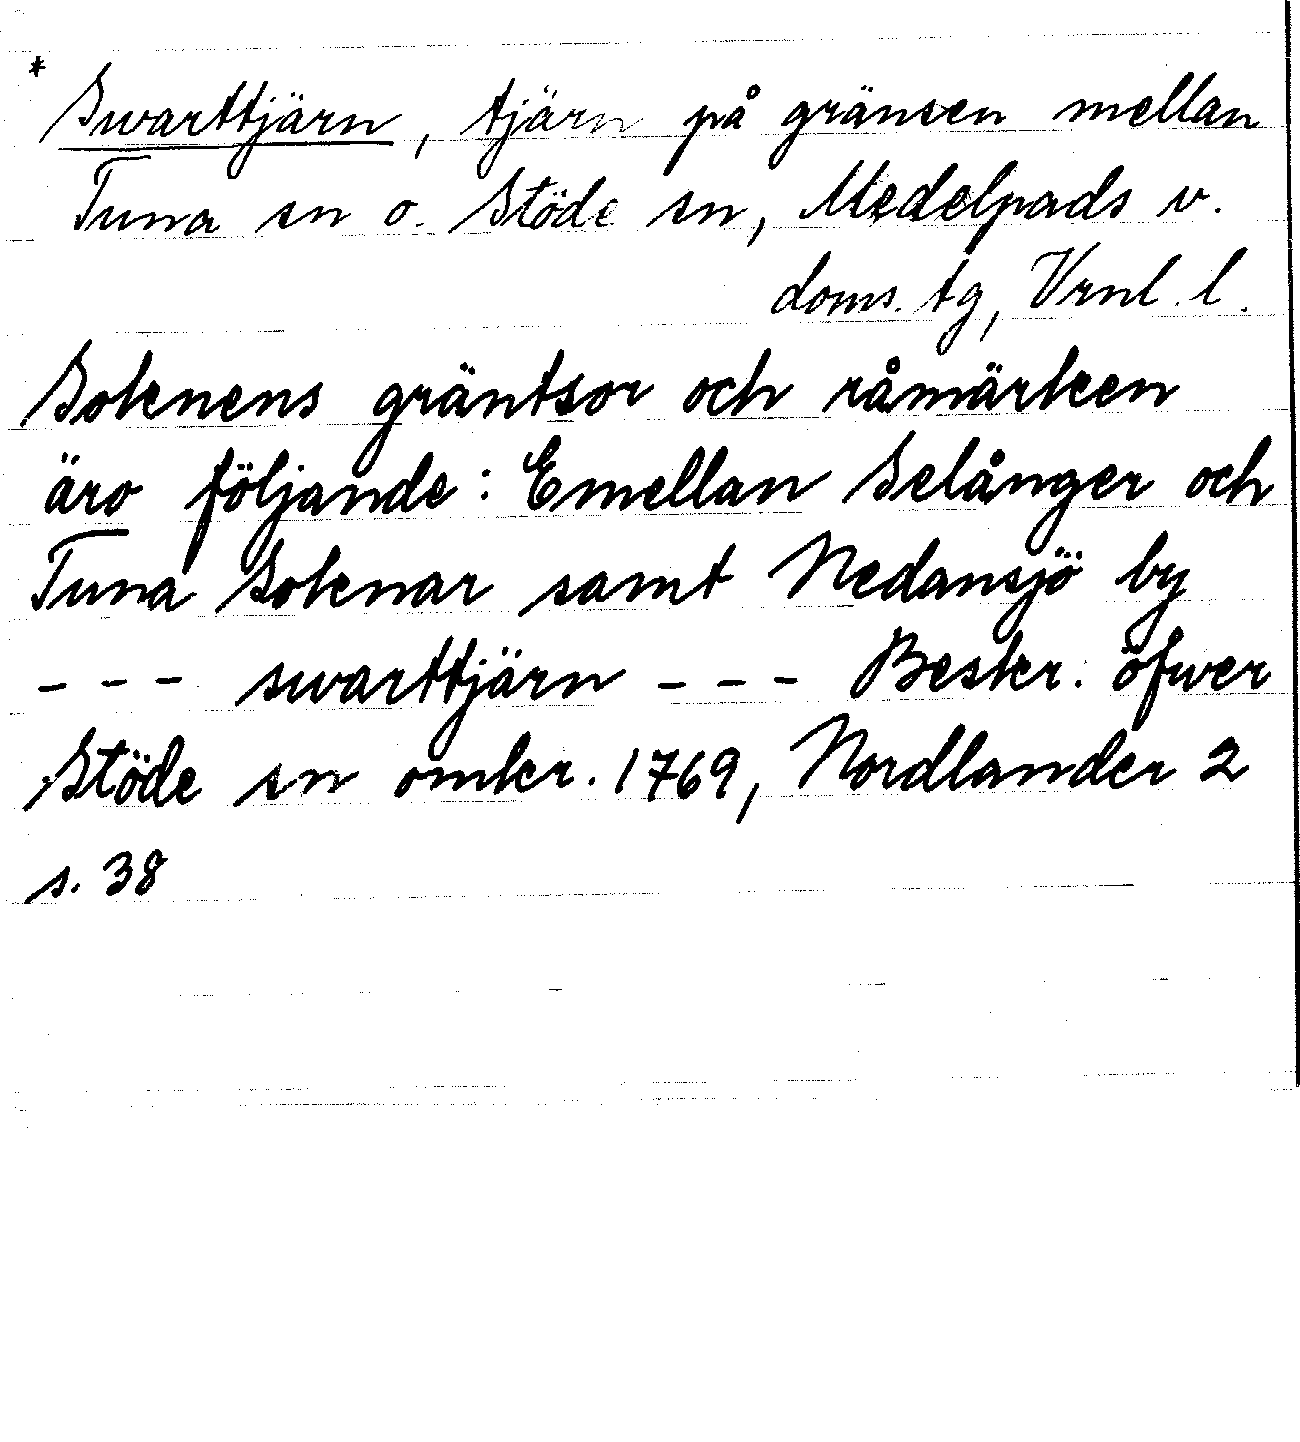 * Swarttjärn, tjärn på gränsen mellan
Tuna sn o. Stöde sn, Medelpads v.
doms. tg, Vrnl. l.
Soknens gräntsor och råmärken
äro följande: Emellan Selånger och
Tuna Soknar samt Nedansjö by
--- swarttjärn --- Beskr. öfwer
Stöde sn omkr. 1769, Nordlander 2
s. 38